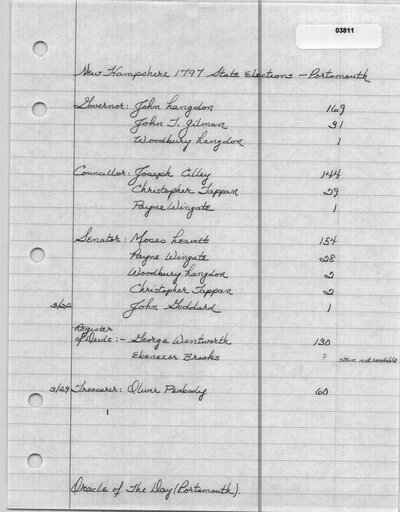 03811
New Hampshire 1797 State Elections - Portsmouth
Governor: John Langdon 169
John T. Gilman 31
Woodbury Langdon 1
Councillor: Joseph Cilley 144
Christopher Tappan 29
Payne Wingate 1
Senator: Moses Leavitt 154
Payne Wingate 28
Woodbury Langdon 2
Christopher Tappan 2
3/22 John Goddard 1
Register
of Deeds: - George Wentworth 130
Ebenezer Brooks ? storn not readable
3/29 Treasurer: Oliver Peabody 60
Oracle of The Day (Portsmouth).